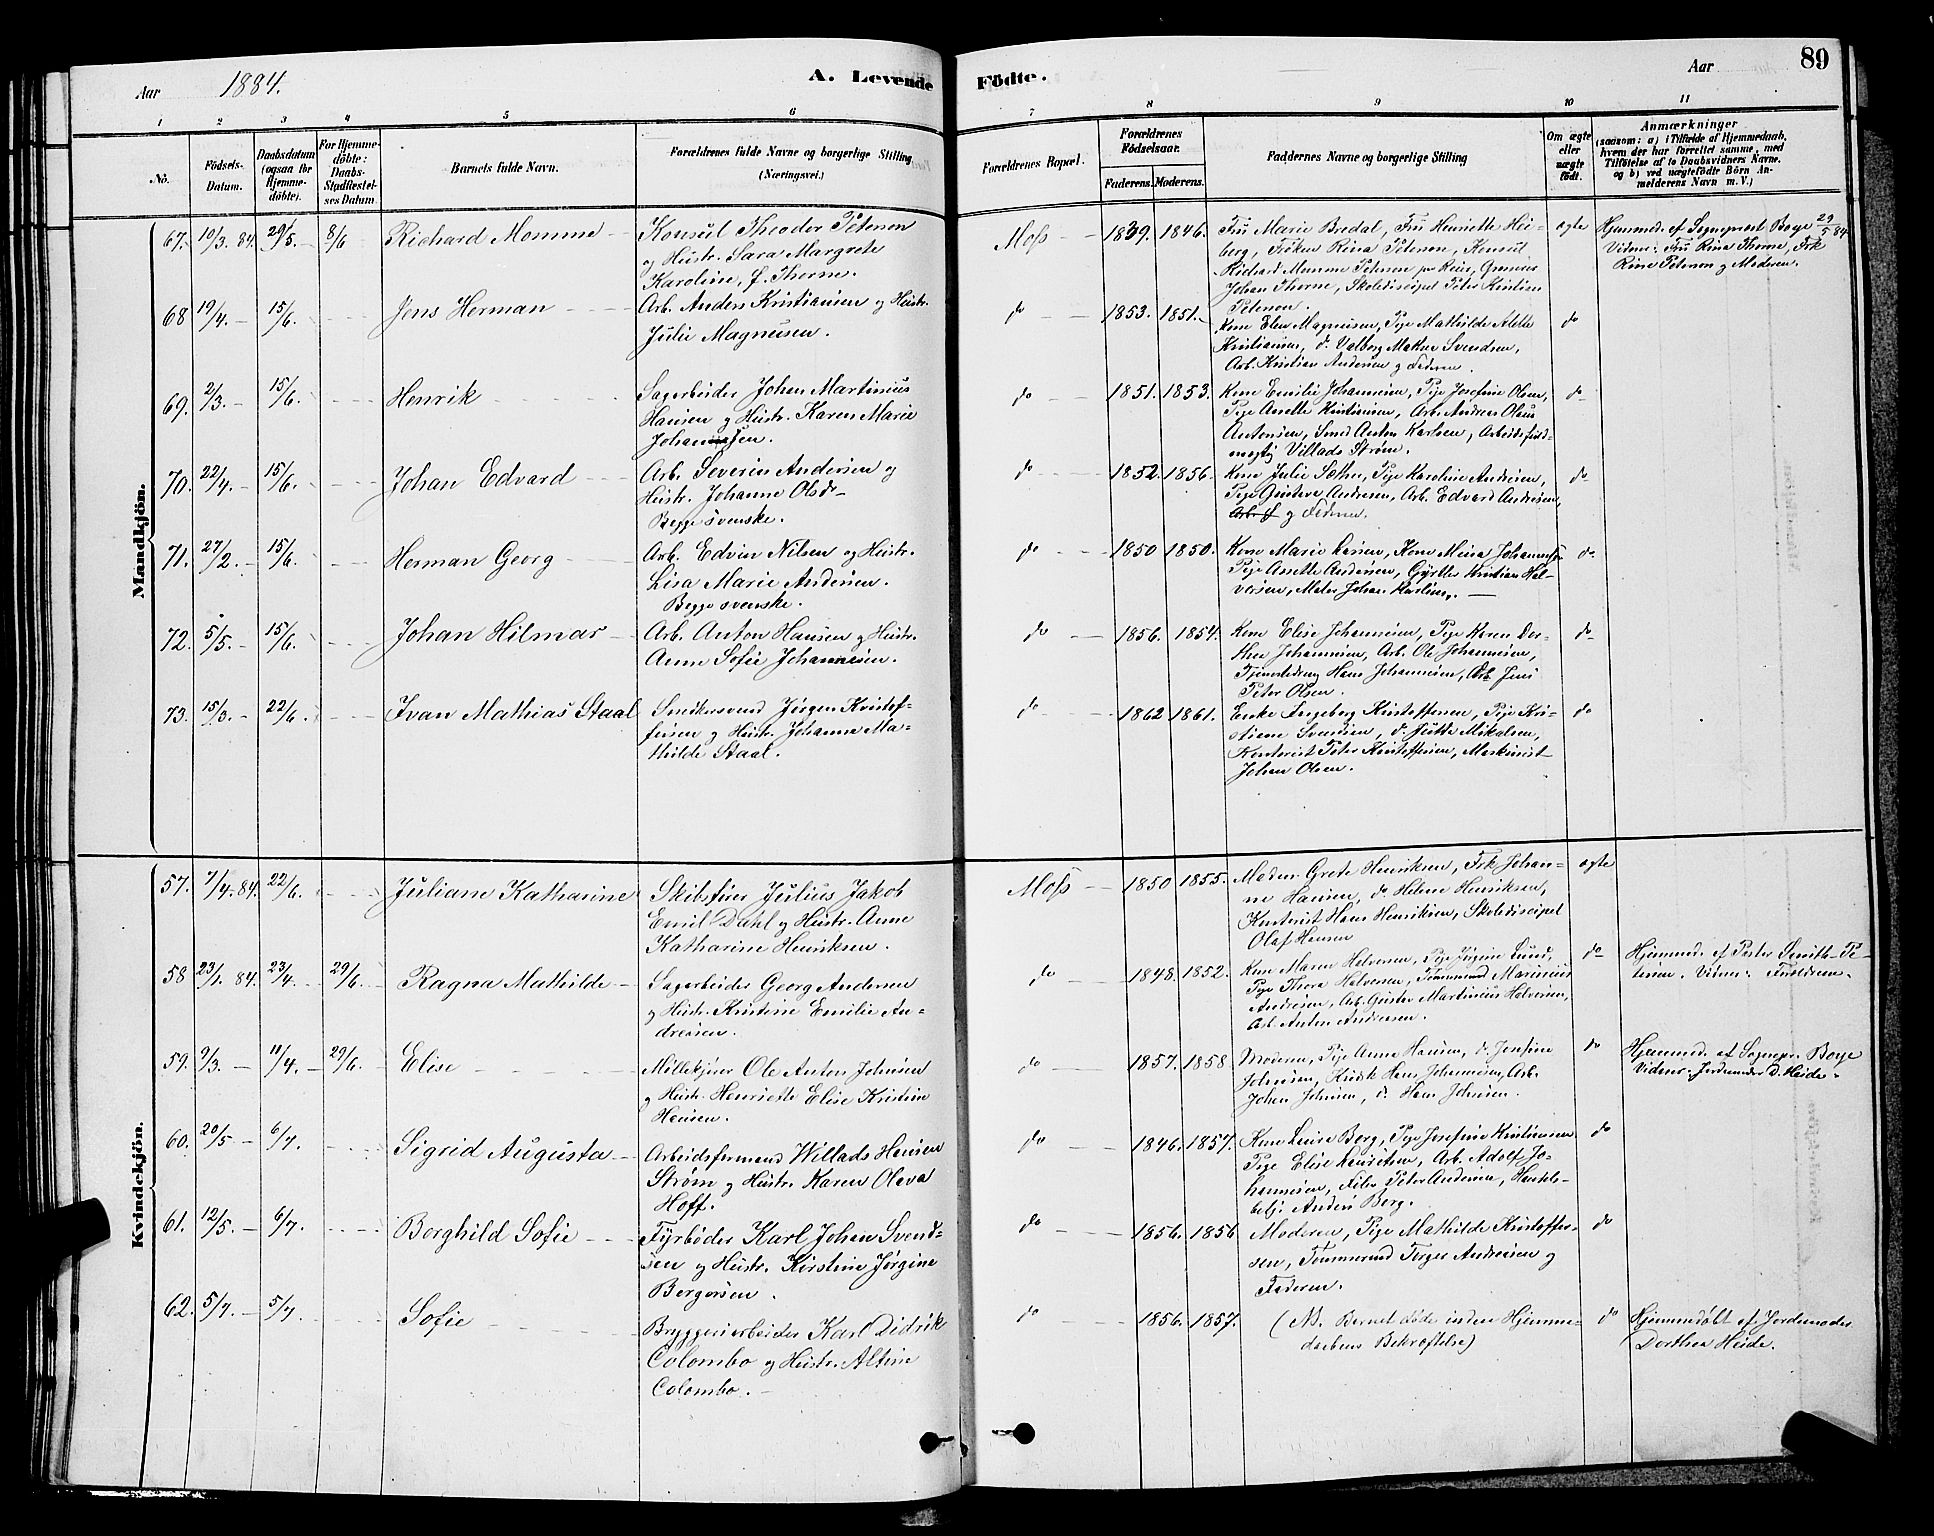 Aar 1884. A. Levende
1 2 3 4 5 6
No. Födsels-Datum. Daabsdatum (ogsaa for Hjemme-döbte). For Hjemme-döbte: Daabs-Stadfæstel-ses Datum. Barnets fulde Navn. Forældrenes fulde Navne og borgerlige Stilling (Næringsvei.)
Mandkjön.
67. 10/3. 84. 29/5. 8/6 Richard Momme Konsul Theodor Petersen
og Hustr. Sara Margrete
Karoline, f. Thorne.
68 19/4. 15/6. Jens Herman Arb. Anders Kristiansen og Hustr.
Julie Magnusen.
69. 2/3. 15/6. Henrik Sagarbeider Johan Martinius
Hansen og Hustr. Karen Marie
Johannesen.
70. 22/4. 15/6. Johan Edvard Arb. Severin Andersen og
Hustr. Johanne Olsdr
Begge svenske.
71. 27/2. 15/6. Herman Georg Arb. Edvin Nilsen og Hustr.
Lisa Marie Andersen.
Begge svenske.
72. 5/5. 15/6. Johan Hilmar Arb. Anton Hansen og Hustr.
Anne Sofie Johannesen.
73. 15/3. 22/6. Ivan Mathias Staal Smedsvend Jørgen Kristof-
fersen og Hustr. Johanna Ma-
thilde Staal.
Kvindekjön.
57. 7/4. 84. 22/6. Juliane Katharine Skibsfører Julius Jakob
Emil Dahl og Hustr. Anne
Katharine Henriksen.
58 23/1. 84. 23/4. 29/6. Ragna Mathilde Sagarbeider Georg Andersen
og Hustr. Kristine Emilie An-
dresen.
59. 9/3. 11/4. 29/6. Elise Møllekjører Ole Anton Johnsen
og Hustr. Henriette Elise Kristine
Hansen.
60. 20/5 6/7. Sigrid Augusta Arbeidsformand Willads Hansen
Strøm og Hustr. Karen Oleva
Hoff.
61. 12/5. 6/7. Borghild Sofie Fyrbøder Karl Johan Svend-
sen og Hustr. Kirstine Jørgine
Borgersen.
62. 5/7. 5/7. Sofie Bryggeriarbeider Karl Didrik
Colombo og Hustr. Altine
Colombo.
Födte. Aar 89
7 8 9 10 11
Forældrenes Bopæl. Forældrenes Födselsaar. Faderens. Moderens. Faddernes Navne og borgerlige Stilling Om ægte eller uægte födt. Anmærkninger
(saasom: a) i Tilfælde af Hjemmedaab,
hvem der har forrettet samme, med
Tilföielse af to Daabsvidners Navne.
og b) ved uægtefödte Börn An-
melderens Navn m. V.)
Moss 1839. 1846. Fru Marie Bredal, Fru Henriette Hei- ægte Hjemmed. af Sognepræst Boye 29/5 84
berg, Frøken Rina Petersen, Konsul Vidner: Fru Rina Thorne, Frk
Richard Momme Petersen, Grosserer Rina Petersen og Moderen.
Johan Thorne, Skolediscipel Peter Kristian
Petersen.
do 1853. 1851. Kone Elen Magnusen, Pige Mathilde Alette do
Kristiansen, do Valborg Svendsen,
Arb. Kristian Andersen og Faderen.
do 1851. 1853. Kone Emilie Johannesen, Pige Josefine Olsen, do
Pige Anette Kristiansen, Arb. Andreas Olaus
Antonsen, Smed Anton Karlsen, Arbeidsfuld-
mægtig Villads Strøm.
do 1852. 1856. Kone Julie Pige Karoline Andersen, do
Pige Gustava Andersen, Arb. Edvard Andersen,
og Faderen.
do 1850 1850. Kone Marie Larsen, Kone Mina Johannesen, do
Pige Anette Andersen, Gjørtler Kristian Hal-
vorsen, Maler Johan Karlsen.
do 1856. 1854. Kone Elise Johannesen, Pige Karen Dor- do
thea Johannesen, Arb. Ole Johannesen,
Tjenestedreng Hans Johannesen, Arb. Jens
Peter Olsen.
do 1862 1861. Enke Ingeborg Kristoffersen, Pige Kri- do
stiane Svendsen, do Jutte Mikalsen,
Kontorist Peter Kristoffersen, Maskinist
Johan Olsen.
Moss 1850 1855. Madm. Grete Henriksen, Frk Johan- ægte
ne Hansen, do Helene Henriksen,
Kontorist Hans Henriksen, Skolediscipel
Olaf Hansen
do 1848. 1852. Kone Maren Halvorsen, Pige Jørgine Lund, do Hjemmed. af Pastor Smith-Pe-
Pige Thora Halvorsen, Tømmermand Marinius tersen. Vidner: Forældrene.
Andresen, Arb. Gustav Martinius Halvorsen,
Arb. Anton Andreasen.
do 1857. 1858 Moderen, Pige Anna Hansen, do Josefine do Hjemmed. af Sognepr. Boye
Johnsen, Kudsk Hans Johannesen, Arb. Vidner: Jordemoder D. Heide.
Johan Johnsen, do Hans Johnsen.
do 1846. 1857. Kone Lovise Berg, Pige Josefine Kristiansen do
Pige Elise Lauritsen, Arb. Adolf Jo-
hannesen, Peter Andersen, Handels-
betj. Anders Berg.
do 1856. 1856 Moderen, Pige Mathilde Kristoffer- do
sen, Tømmermand Torger Andresen og
Faderen.
do 1856. 1857. (NB. Barnet døde inden Hjemme- do Hjemmedøbt af Jordemoder
daabens Bekræftelse) Dorthea Heide.